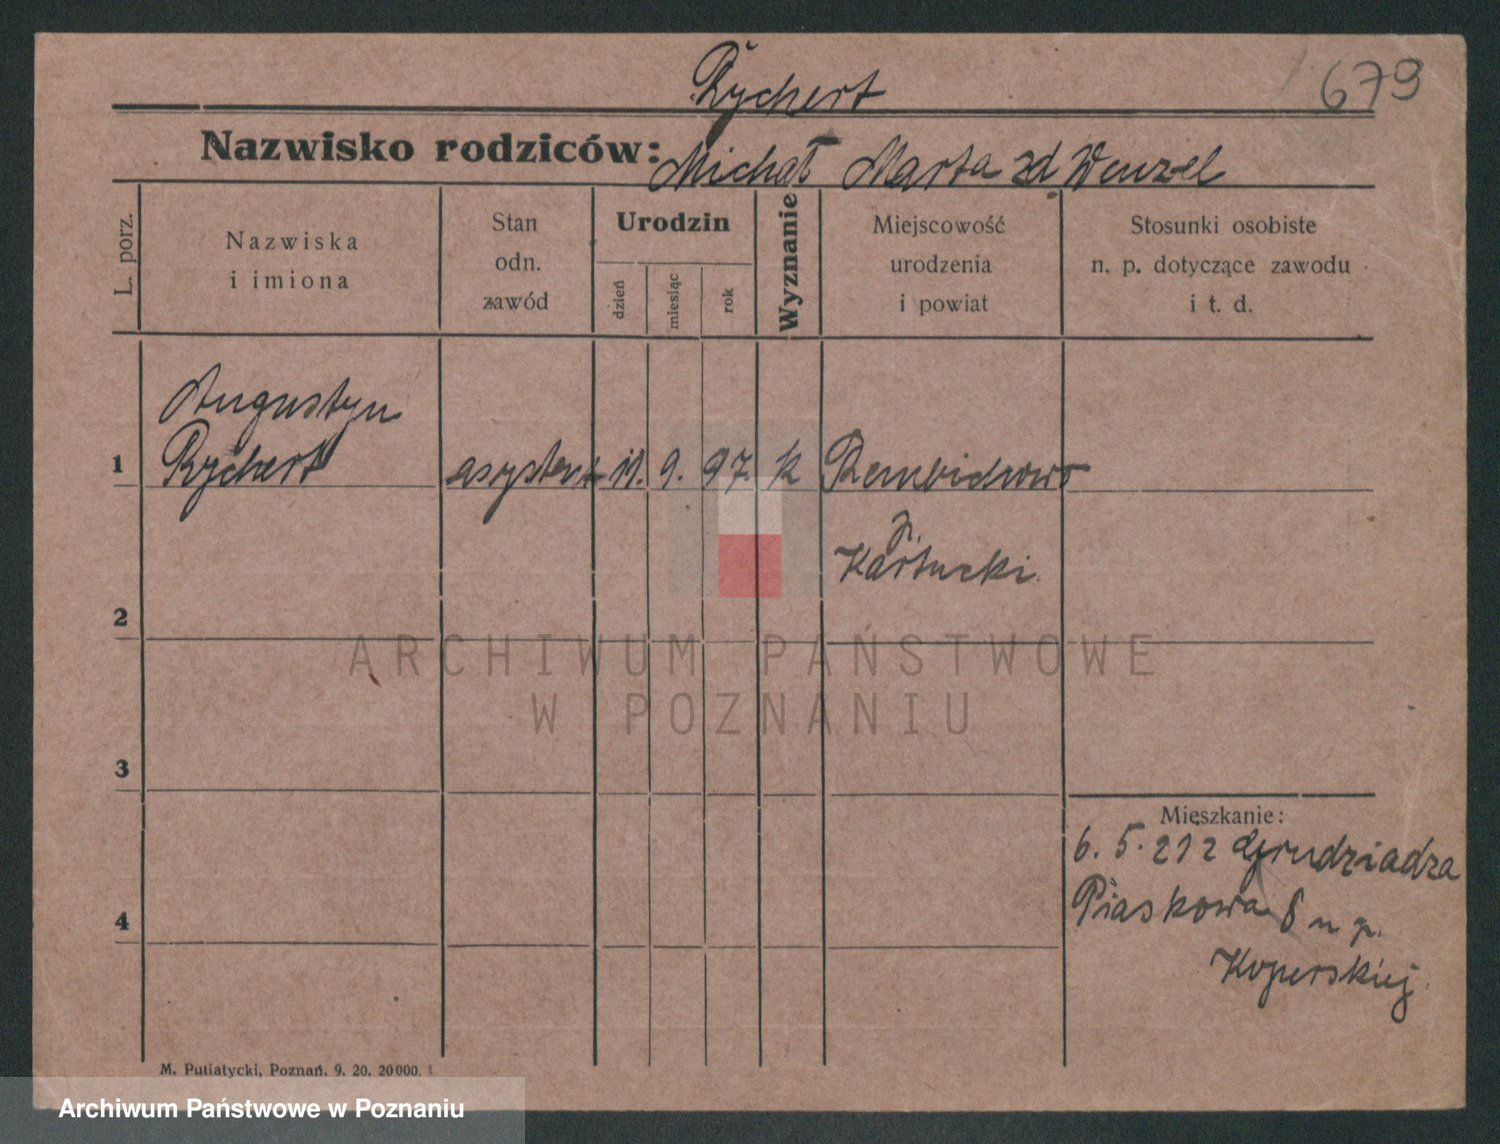 Rychert
679
Nazwisko rodziców: Michał Marta zd Wenzel
L. porz.
Nazwiska
i imiona
Stan
odn.
zawód
Urodzin
dzień
miesiąc
rok
Wyznanie
Miejscowość
urodzenia
i powiat
Stosunki osobiste
n. p. dotyczące zawodu
i t. d.
Augustyn
1 Rychert asystent 11. 9. 97. k
Kartucki
2
3
4
Mieszkanie:
6. 5. 212 Grudziadza
Piaskowa 8 u p.
Koperskiej
M. Putiatycki, Poznań. 9. 20. 20000.
ARCHIWUM PAŃSTWOWE
W POZNANIU
Archiwum Państwowe w Poznaniu